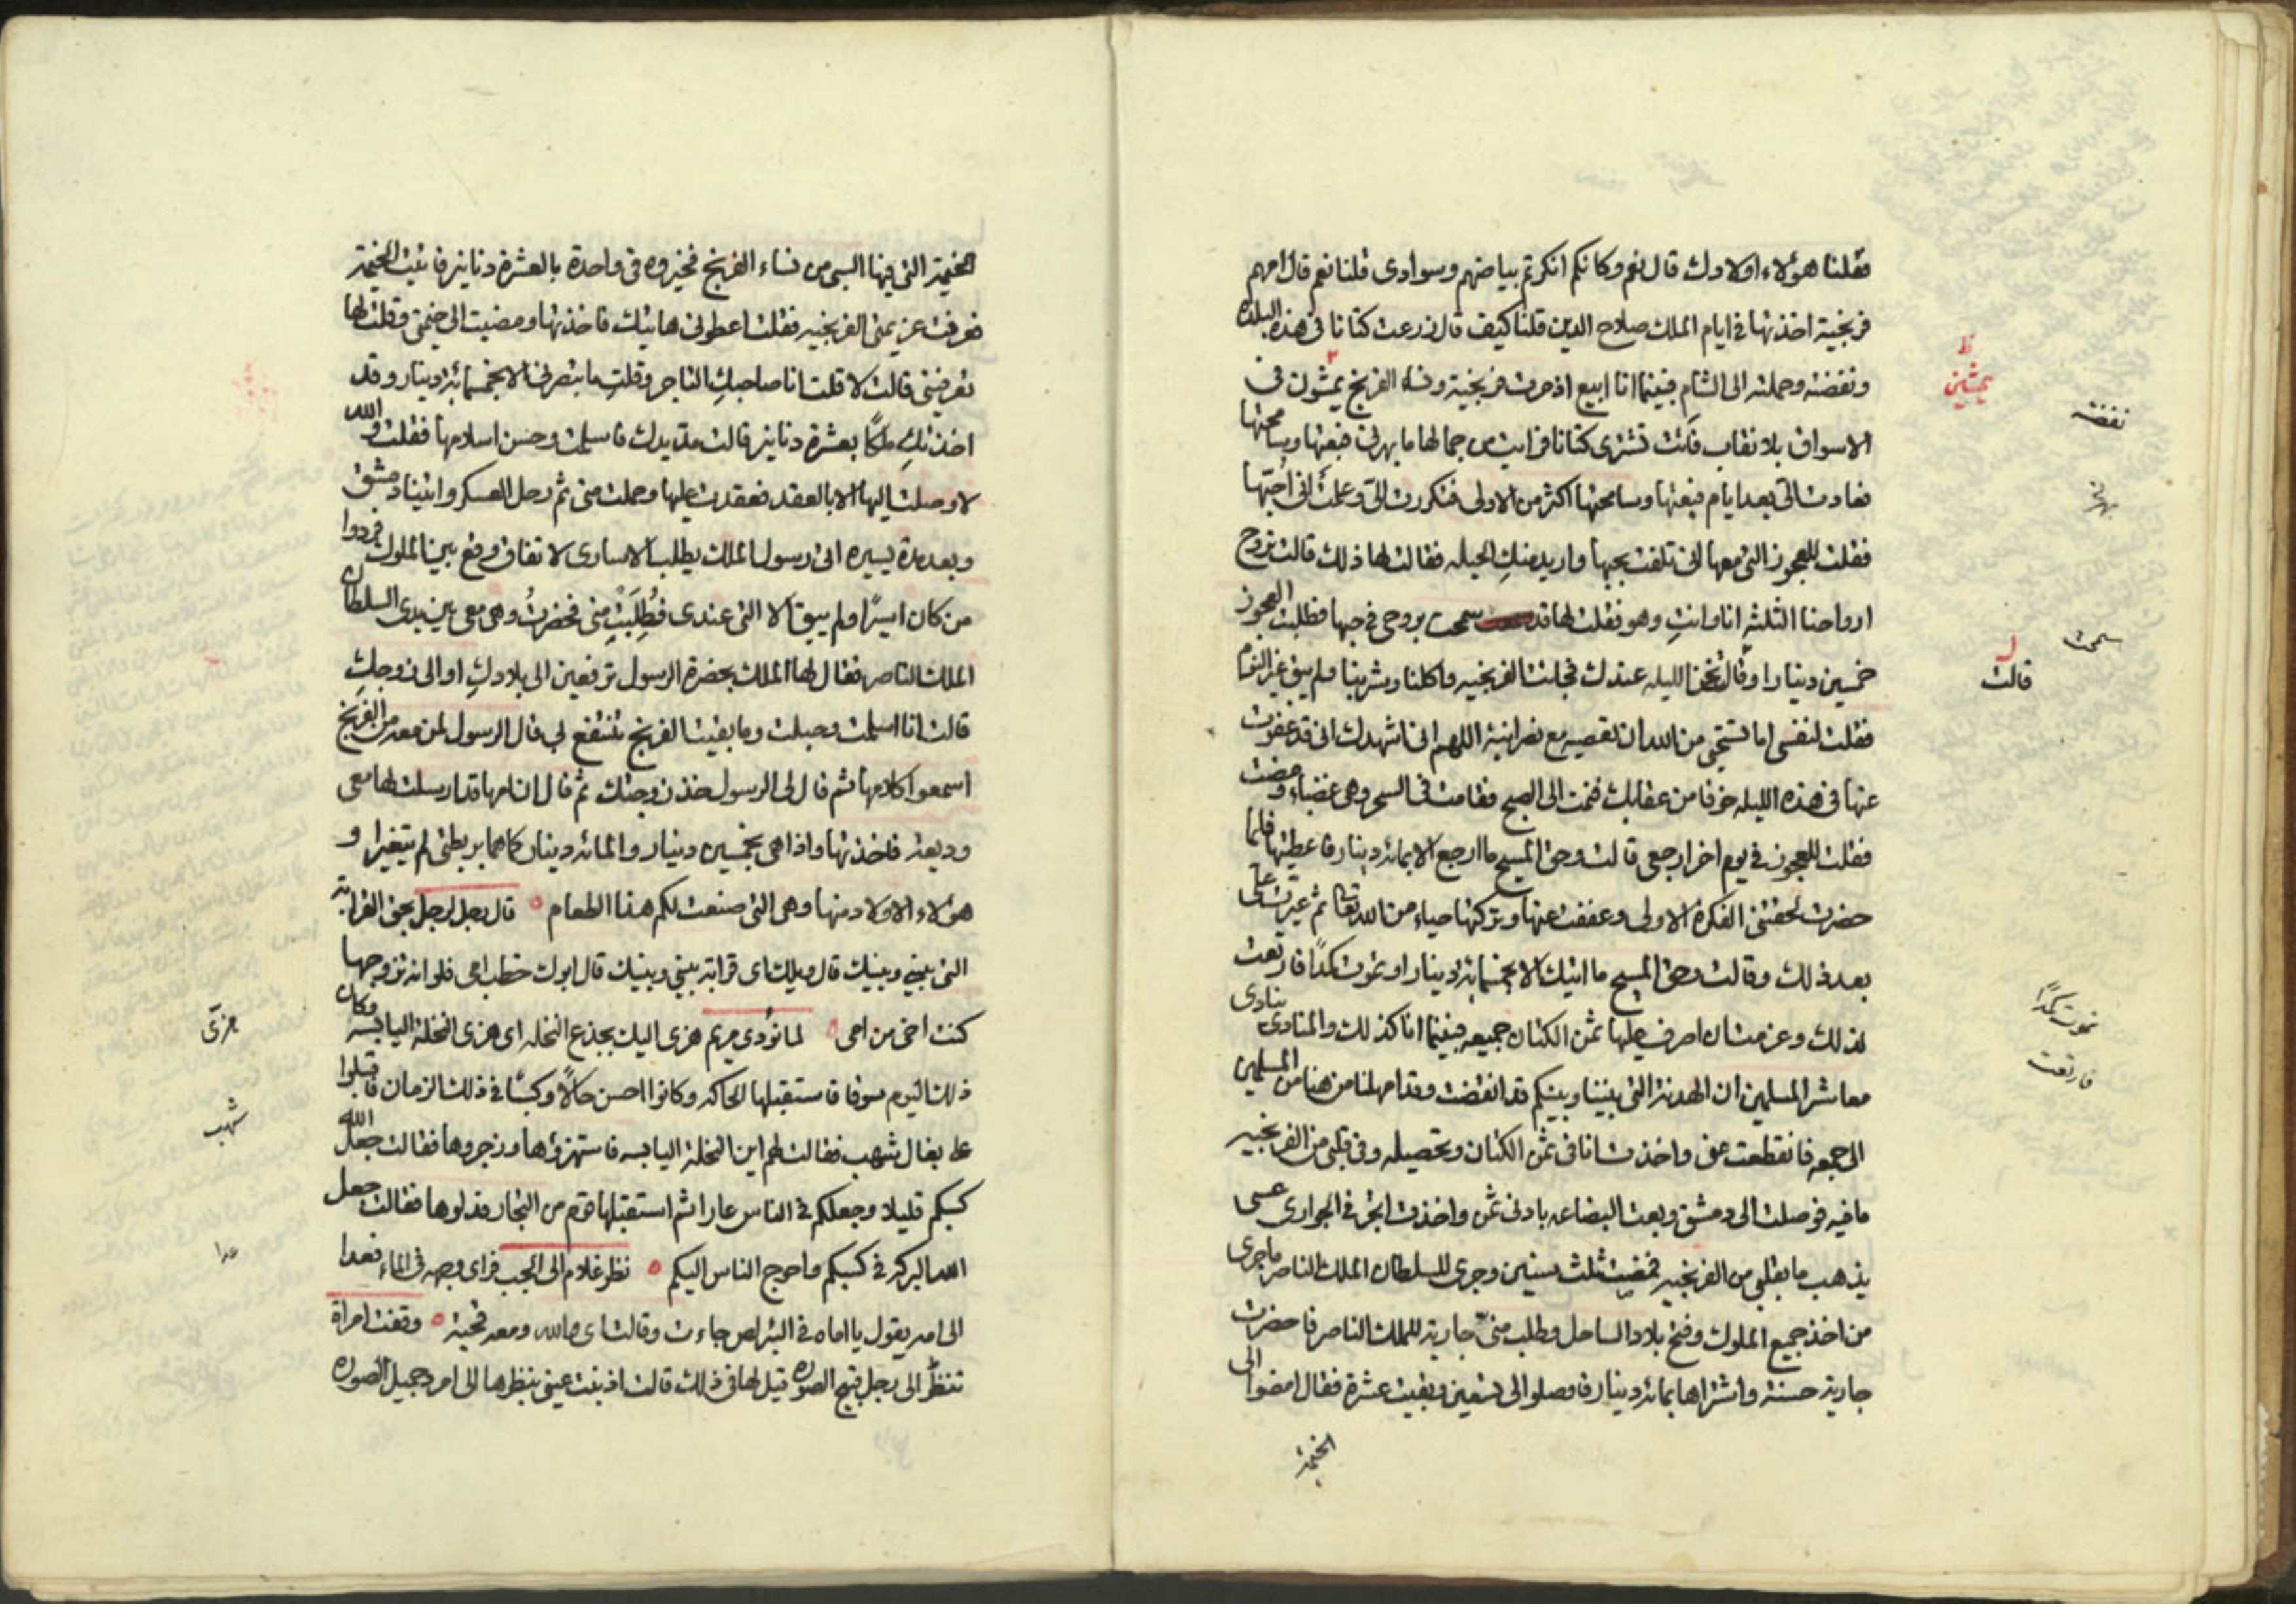 فقلنا هؤلاء اولادك قال نعم وكانكم انكرتم بياضهم وسوادى قلنا نعم قال امهم
فرنجية اخذتها فى ايام الملك صلاح الدين قلنا كيف قال زرعت كتانا فى هذه البلدة
ونفضته وحملته الى الشام فبينما انا ابيع اذ مرت فرنجية ونساء الفرنج يمشون فى
الاسواق بلا نقاب فأتت تشترى كتانا فرايت من جمالها ما بهرنى فبعتها وسامحتها
فعادت الى بعد ايام فبعتها وسامحتها اكثر من الاولى فتكررت الىّ وعلمت انى احبّها
فقلت للعجوز التى معها انى تلفت بحبها واريد منكِ الحيله فقالت لها ذلك قالت تروح
ارواحنا الثلثة انا وانتِ وهو فقلت لها قد سمحت بروحى فى حبها فطلبت العجوز
خمسين دينارا وقال نحن الليله عندك فجاءت الفرنجيه واكلنا وشربنا ولم يبق غير النوم
فقلت لنفسى اما تستحى من الله ان تعصيه مع نصرانية اللهم انى اشهدك انى قد عففت
عنها فى هذه الليله خوفا من عقابك فنمت الى الصبح فقامت فى السحر وهى غضباء ومضت
فقلت للعجوز فى يوم اخر ارجعى قالت وحق المسيح ما ارجع الا بمائة دينار فاعطيتها فلما
حضرت لحقتنى الفكرة الاولى وعففت عنها وتركتها حياء من الله تعالى ثم عبرت على
بعد ذلك وقالت وحق المسيح ما اتيك الا بخمسمائة دينار او تموت كمدًا فارتعت
لذلك وعزمت ان اصرف عليها ثمن الكتان جميعه فبينما انا كذلك والمنادى ينادى
معاشر المسلمين ان الهدنة التى بيننا وبينكم قد انقضت وقد امهلنا من هنا من المسلمين
الى جمعه فانقطعت عنى واخذت انا فى ثمن الكتان وتحصيله وفى قلبى من الفرنجيه
ما فيه فوصلت الى دمشق وبعت البضاعه باوفى ثمن واخذت اتجر فى الجوارى عسى
يذهب ما بقلبى من الفرنجيه فمضيت ثلث سنين وجرى للسلطان الملك الناصر ما جرى
من اخذ جميع الملوك وفتح بلاد الساحل وطلب منىّ جارية للملك الناصر فاحضرت
جارية حسنة واشتراها بمائة دينار فاوصلوا الى تسعين وبقيت عشرة فقال امضوا الى
الخيمة
ظ
يمشين
نفضته
بهرنى
سمحت
ل
قالت
تموت كمدًا
فارتعت
الخيمة التى فيها السبى من نساء الفرنج فخيروه فى واحدة بالعشرة دنانير فاتيت الخيمة
فعرفت غريمتى الفرنجيه فقلت اعطونى هاتيك فاخذتها ومضيت الى خيمتى وقلت لها
تعرفينى قالت لا قلت انا صاحبكِ التاجر وقلتِ ما تبصرنى الا بخمسمائة دينار وقد
اخذتكِ ملكًا بعشرة دنانير قالت مدّ يدك فاسلمت وحسن اسلامها فقلت والله
لا وصلت اليها الا بالعقد فعقدت عليها وحملت منى ثم رحل العسكر واتينا دمشق
وبعد مدة يسيره اتى رسول الملك يطلب الاسارى لاتفاق وقع بين الملوك فردوا
من كان اسيرًا ولم يبق الا التى عندى فطُلِبَتْ منى فحضرتُ وهى معى بين يدى السلطان
الملك الناصر فقال لها الملك بحضرة الرسول ترفعين الى بلادكِ او الى زوجكِ
قالت انا اسلمت وحبلت وما بقيت الفرنج تنتفع بى قال الرسول لمن معه من الفرنج
اسمعوا كلامها ثم قال لى الرسول خذ زوجتك ثم قال ان امها قد ارسلت لها معى
وديعة فاخذتها واذا هى بخمسين دينار والمائة دينار كما هما بربطتى لم يتغيرا و
هؤلاء الاولاد منها وهى التى صنعت لكم هذا الطعام ه قال رجل لرجل بحق القرابة
التى بينى وبينك قال ويلك اى قرابة بينى وبينك قال ابوك خطب امى فلو انه تزوجها
كنت اخى من امى ه لما نودى مريم هزى اليك بجذع النخله اى هزى النخلة اليابسه وكان
ذلك اليوم سوقا فاستقبلها الحاكه وكانوا احسن حالاً وكسبًا فى ذلك الزمان فاقبلوا
على بغال شهب فقالت لهم اين النخلة اليابسه فاستهزؤها وزجروها فقالت جعل الله
كسبكم قليلا وجعلكم فى الناس عارا ثم استقبلها قوم من التجار فدلوها فقالت جعل
الله البركة فى كسبكم واحوج الناس اليكم ه نظر غلام الى الجب فراى وجهه فى الماء فعدا
الى امه يقول يا اماه فى البئر لص جاءت وقالت اى والله ومعه قحبة ه وقفت امراة
تنظر الى رجل قبيح الصوره قيل لها فى ذلك قالت اذنبت عينى بنظرها الى امرد جميل الصوره
هزّى
شهب
عدا